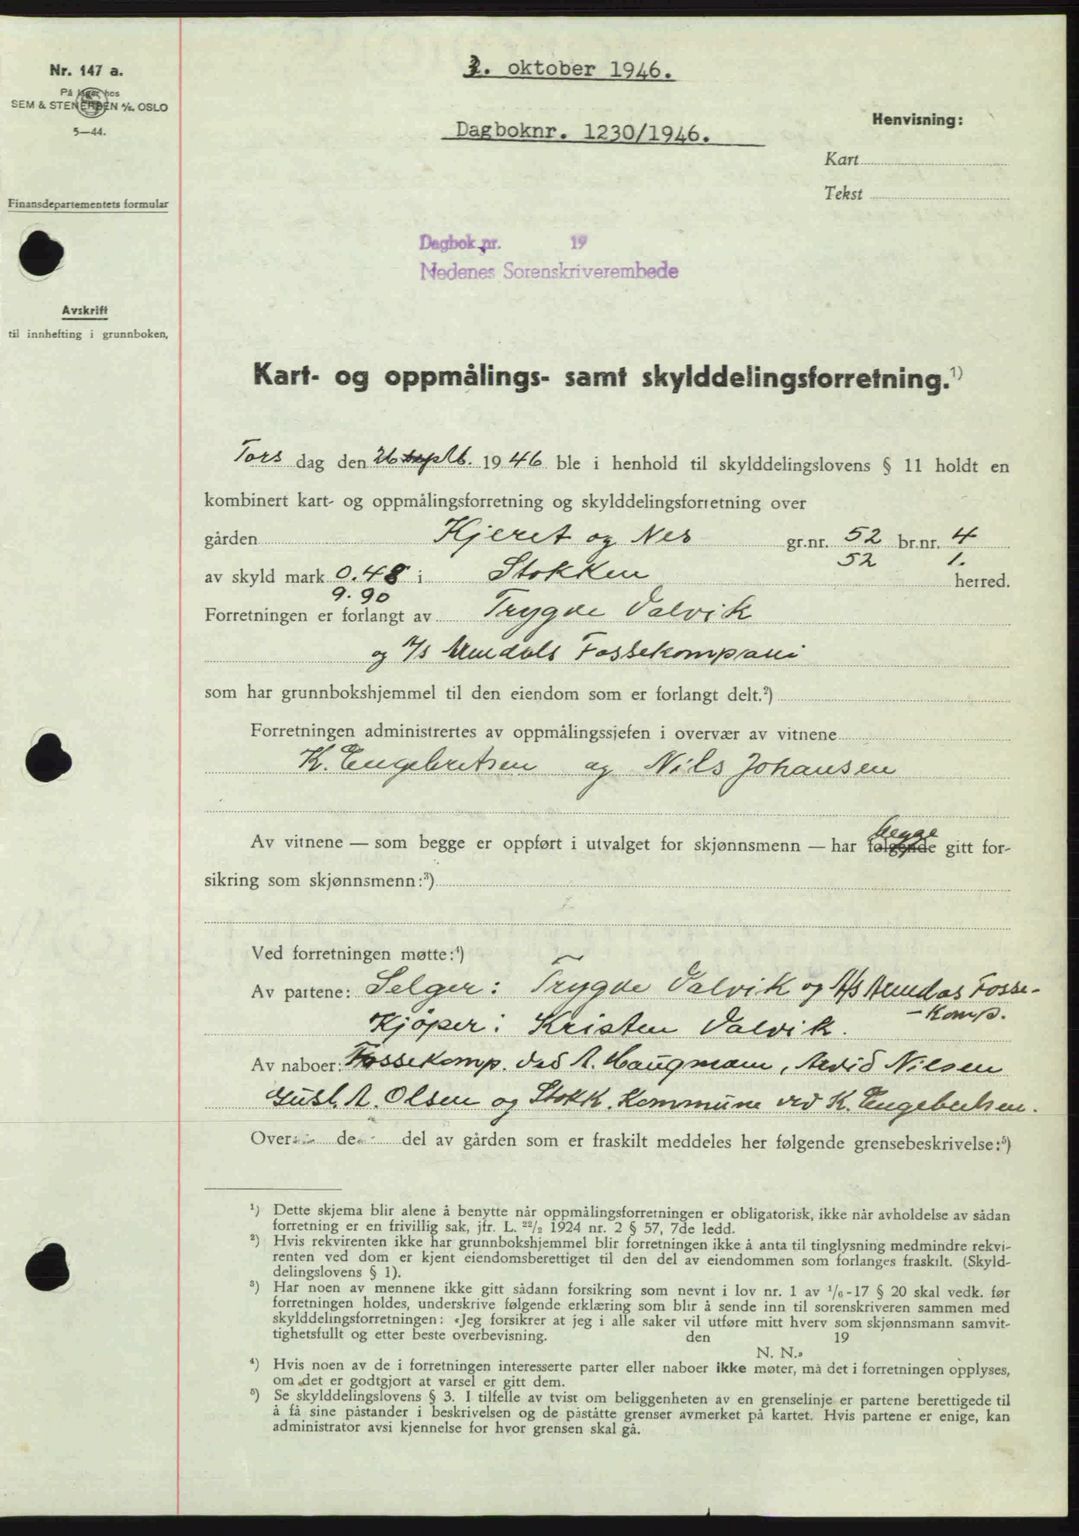 Nr. 147 a.
På lager hos
SEM & STENERSEN A/S. OSLO
5—44.
Finansdepartementets formular
Avskrift
til innhefting i grunnboken.
2. oktober 1946.
Dagboknr. 1230/1946.
Henvisning:
Kart
Tekst
Dagbok nr. 19
Nedenes Sorenskriverembede
Kart- og oppmålings- samt skylddelingsforretning.¹)
Tors dag den 26 septb. 1946 ble i henhold til skylddelingslovens § 11 holdt en
kombinert kart- og oppmålingsforretning og skylddelingsforretning over
gården Kjeret og Nes gr.nr. 52 br.nr. 4
52 1.
av skyld mark 0.48 i Stokken herred.
9.90
Forretningen er forlangt av Trygve Valvik
og A/S Arendals Fossekompani
som har grunnbokshjemmel til den eiendom som er forlangt delt.²)
Forretningen administrertes av oppmålingssjefen i overvær av vitnene
K. Engebretsen og Nils Johansen
begge
Av vitnene — som begge er oppført i utvalget for skjønnsmenn — har følgende gitt for-
sikring som skjønnsmenn:³)
Ved forretningen møtte:⁴)
Av partene: Selger: Trygve Valvik og A/S Arendals Fosse-
-komp.
Kjöper: Kristen Valvik.
Av naboer: Fossekomp. ved A. Haugmann, Arvid Nilsen
Gust. A. Olsen og Stokk. Kommune ved K. Engebretsen.
Over de del av gården som er fraskilt meddeles her følgende grensebeskrivelse:⁵)
¹) Dette skjema blir alene å benytte når oppmålingsforretningen er obligatorisk, ikke når avholdelse av sådan
forretning er en frivillig sak, jfr. L. ²²/₂ 1924 nr. 2 § 57, 7de ledd.
²) Hvis rekvirenten ikke har grunnbokshjemmel blir forretningen ikke å anta til tinglysning medmindre rekvi-
renten ved dom er kjent eiendomsberettiget til den del av eiendommen som forlanges fraskilt. (Skyld-
delingslovens § 1).
³) Har noen av mennene ikke gitt sådann forsikring som nevnt i lov nr. 1 av ¹/₆-17 § 20 skal vedk. før
forretningen holdes, underskrive følgende erklæring som blir å sende inn til sorenskriveren sammen med
skylddelingsforretningen: «Jeg forsikrer at jeg i alle saker vil utføre mitt hverv som skjønnsmann samvit-
tighetsfullt og etter beste overbevisning. den 19
N. N.»
⁴) Hvis noen av de i forretningen interesserte parter eller naboer ikke møter, må det i forretningen opplyses,
om det er godtgjort at varsel er gitt dem.
⁵) Se skylddelingslovens § 3. I tilfelle av tvist om beliggenheten av en grenselinje er partene berettigede til
å få sine påstander i beskrivelsen og de påståtte grenser avmerket på kartet. Hvis partene er enige, kan
administrator avsi kjennelse for hvor grensen skal gå.